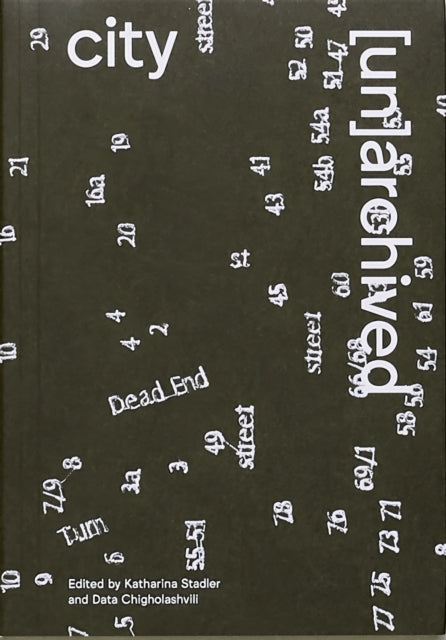 city
[un]archived
29
street
50
52
51-47
54a
54b
53
55
19
41
21
16a
43
16
20
st
45
60
59
61
4
4
2
street
54
10
Dead End
56
58
49
street
8
7/9
3a
3
69/71
78
76
71
73
Turn
55-51
6
10
9
75
77
7
5
8
Edited by Katharina Stadler
and Data Chigholashvili